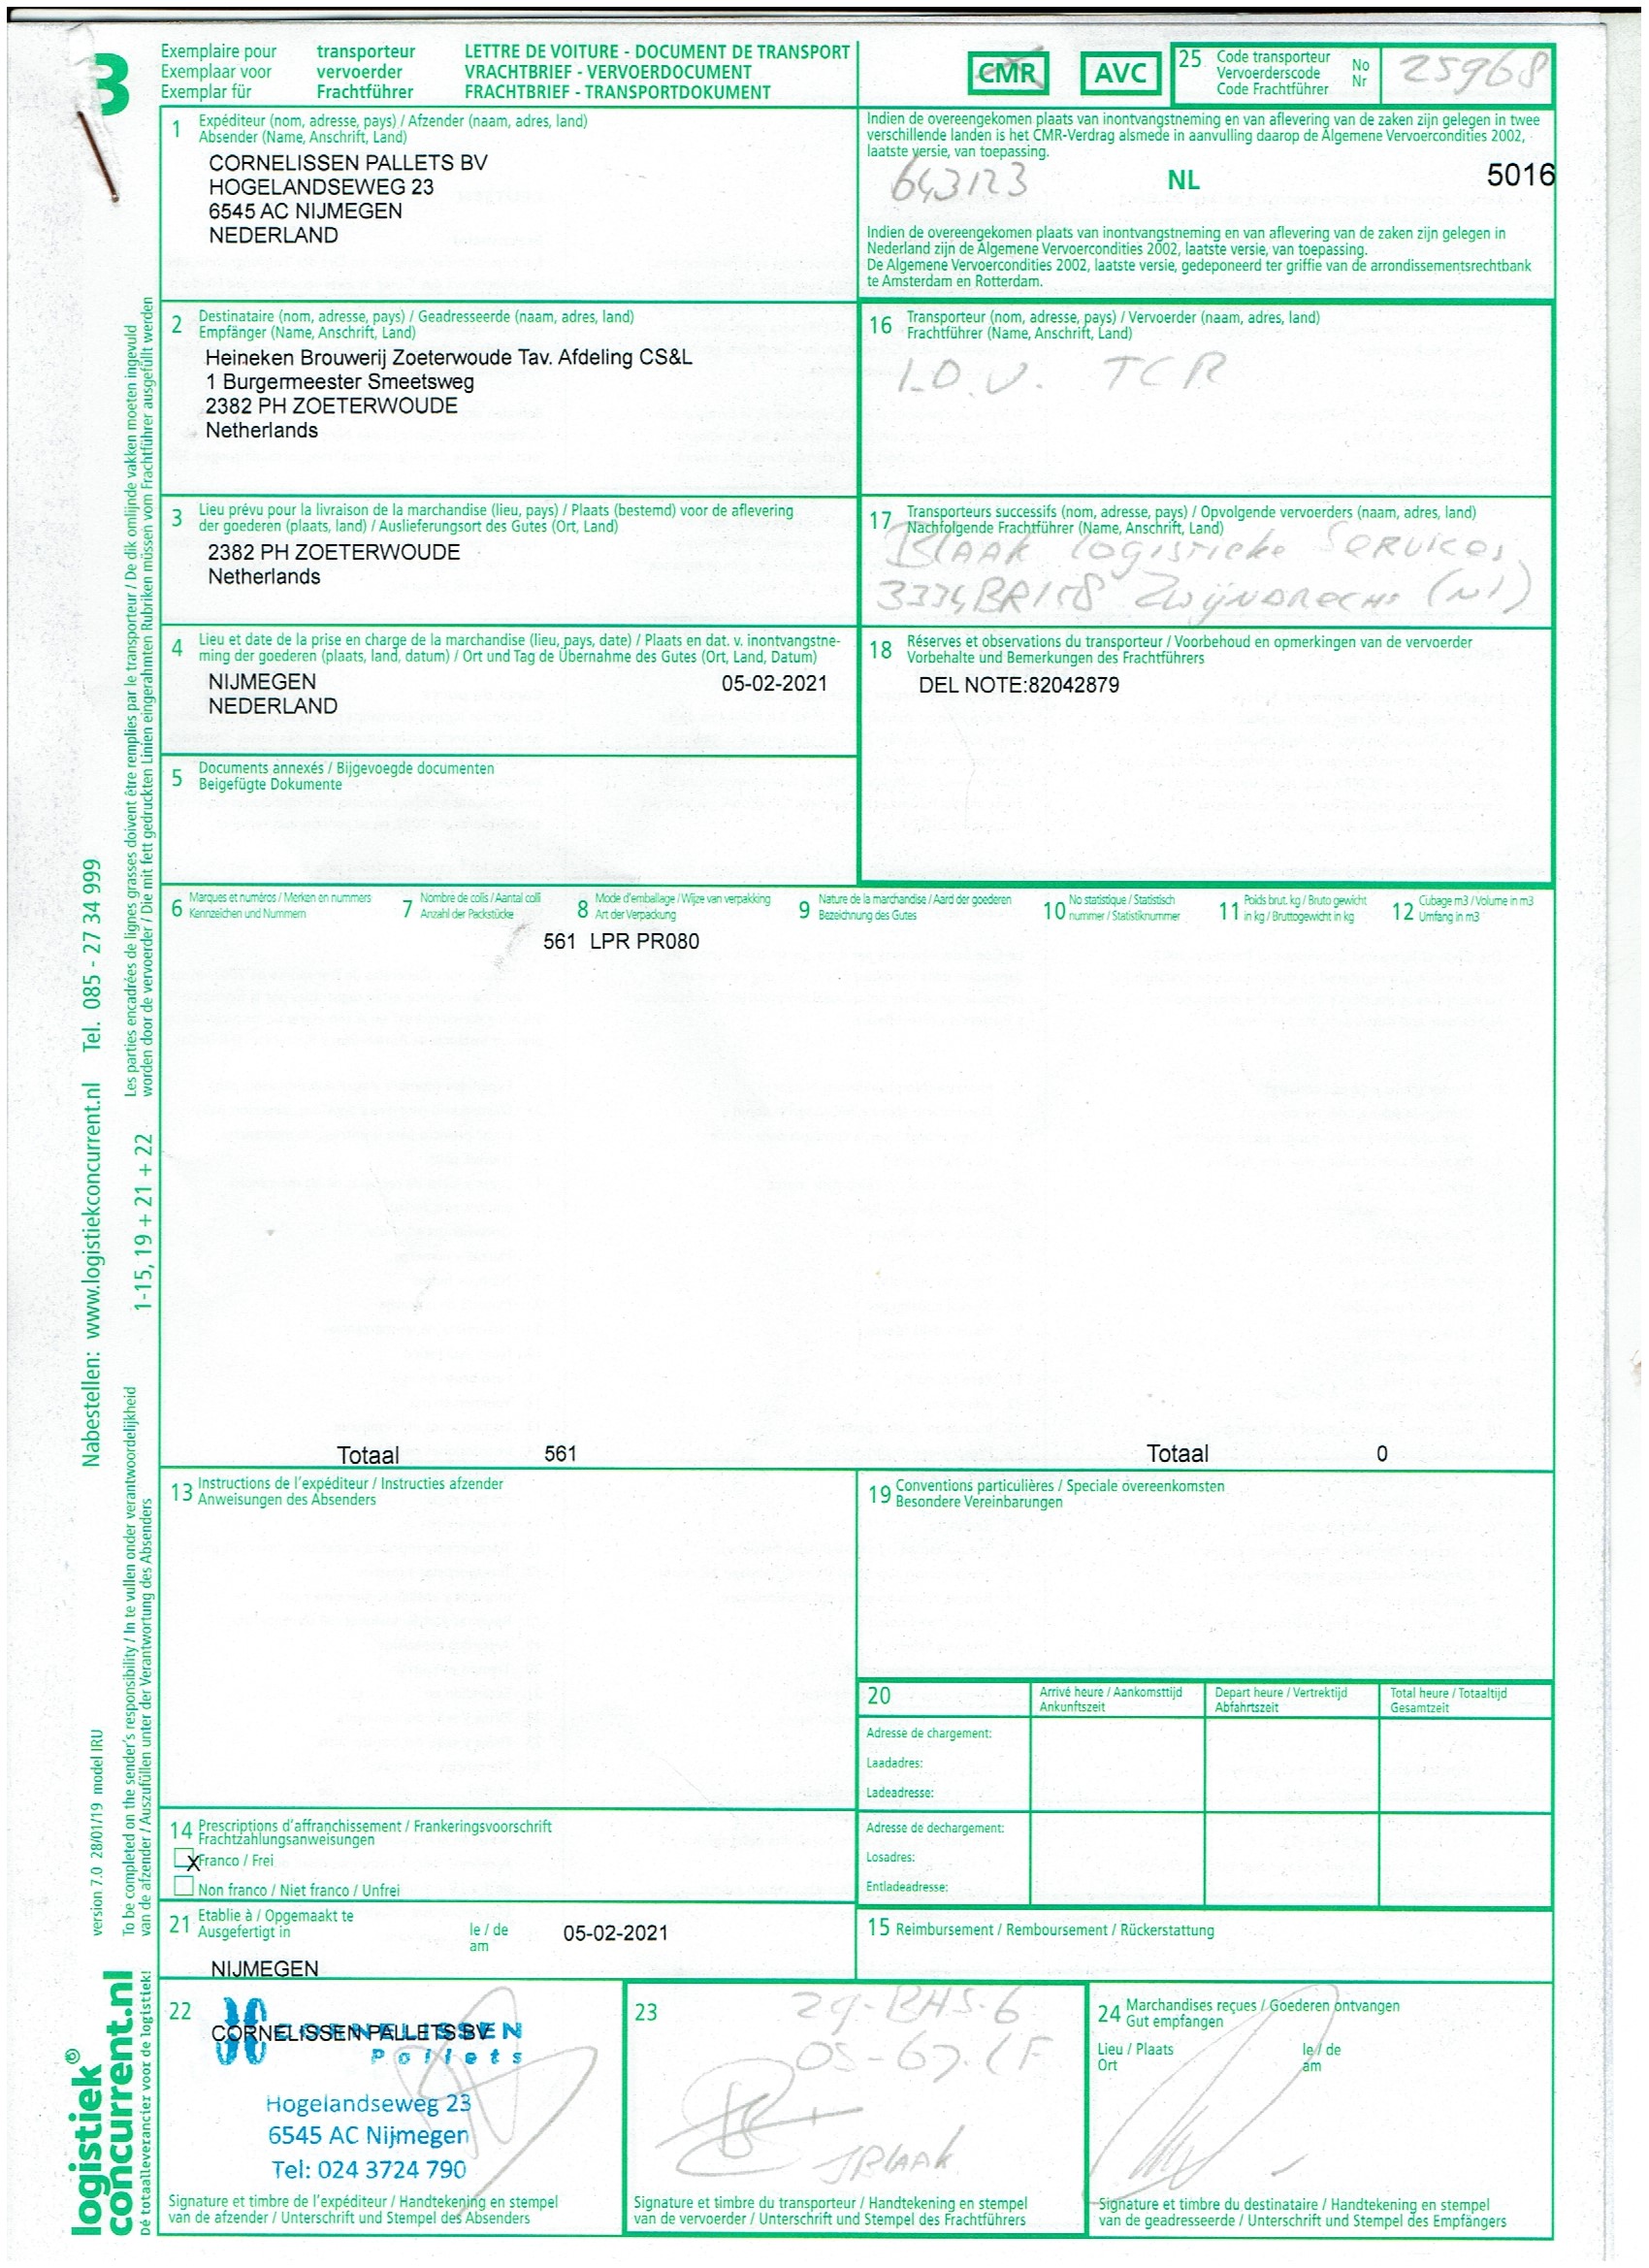 3
Exemplaire pour transporteur
Exemplaar voor vervoerder
Exemplar für Frachtführer
LETTRE DE VOITURE - DOCUMENT DE TRANSPORT
VRACHTBRIEF - VERVOERDOCUMENT
FRACHTBRIEF - TRANSPORTDOKUMENT
CMR
AVC
25 Code transporteur
Vervoerderscode
Code Frachtführer
No
Nr
25968
1 Expéditeur (nom, adresse, pays) / Afzender (naam, adres, land)
Absender (Name, Anschrift, Land)
CORNELISSEN PALLETS BV
HOGELANDSEWEG 23
6545 AC NIJMEGEN
NEDERLAND
Indien de overeengekomen plaats van inontvangstneming en van aflevering van de zaken zijn gelegen in twee
verschillende landen is het CMR-Verdrag alsmede in aanvulling daarop de Algemene Vervoercondities 2002,
laatste versie, van toepassing.
643123
NL
5016
Indien de overeengekomen plaats van inontvangstneming en van aflevering van de zaken zijn gelegen in
Nederland zijn de Algemene Vervoercondities 2002, laatste versie, van toepassing.
De Algemene Vervoercondities 2002, laatste versie, gedeponeerd ter griffie van de arrondissementsrechtbank
te Amsterdam en Rotterdam.
2 Destinataire (nom, adresse, pays) / Geadresseerde (naam, adres, land)
Empfänger (Name, Anschrift, Land)
Heineken Brouwerij Zoeterwoude Tav. Afdeling CS&L
1 Burgermeester Smeetsweg
2382 PH ZOETERWOUDE
Netherlands
16 Transporteur (nom, adresse, pays) / Vervoerder (naam, adres, land)
Frachtführer (Name, Anschrift, Land)
I.O.V. TCR
3 Lieu prévu pour la livraison de la marchandise (lieu, pays) / Plaats (bestemd) voor de aflevering
der goederen (plaats, land) / Auslieferungsort des Gutes (Ort, Land)
2382 PH ZOETERWOUDE
Netherlands
17 Transporteurs successifs (nom, adresse, pays) / Opvolgende vervoerders (naam, adres, land)
Nachfolgende Frachtführer (Name, Anschrift, Land)
BLAAK Logistieke Services
3334BR158 Zwijndrecht (NL)
4 Lieu et date de la prise en charge de la marchandise (lieu, pays, date) / Plaats en dat. v. inontvangstne-
ming der goederen (plaats, land, datum) / Ort und Tag de Übernahme des Gutes (Ort, Land, Datum)
NIJMEGEN 05-02-2021
NEDERLAND
18 Réserves et observations du transporteur / Voorbehoud en opmerkingen van de vervoerder
Vorbehalte und Bemerkungen des Frachtführers
DEL NOTE:82042879
5 Documents annexés / Bijgevoegde documenten
Beigefügte Dokumente
6 Marques et numéros / Merken en nummers
Kennzeichen und Nummern
7 Nombre de colis / Aantal colli
Anzahl der Packstücke
8 Mode d'emballage / Wijze van verpakking
Art der Verpackung
9 Nature de la marchandise / Aard der goederen
Bezeichnung des Gutes
10 No statistique / Statistisch
nummer / Statistiknummer
11 Poids brut, kg / Bruto gewicht
in kg / Bruttogewicht in kg
12 Cubage m3 / Volume in m3
Umfang in m3
561 LPR PR080
Totaal 561 Totaal 0
13 Instructions de l'expéditeur / Instructies afzender
Anweisungen des Absenders
19 Conventions particulières / Speciale overeenkomsten
Besondere Vereinbarungen
20
Arrivé heure / Aankomsttijd
Ankunftszeit
Depart heure / Vertrektijd
Abfahrtszeit
Total heure / Totaaltijd
Gesamtzeit
Adresse de chargement:
Laadadres:
Ladeadresse:
Adresse de dechargement:
Losadres:
Entladeadresse:
14 Prescriptions d'affranchissement / Frankeringsvoorschrift
Frachtzahlungsanweisungen
x Franco / Frei
Non franco / Niet franco / Unfrei
21 Etablie à / Opgemaakt te
Ausgefertigt in
le / de
am
05-02-2021
NIJMEGEN
15 Reimbursement / Remboursement / Rückerstattung
22
CORNELISSEN PALLETS BV
CORNELISSEN
Pallets
Hogelandseweg 23
6545 AC Nijmegen
Tel: 024 3724 790
Signature et timbre de l'expéditeur / Handtekening en stempel
van de afzender / Unterschrift und Stempel des Absenders
23
29-BHS-6
JBLAAK
Signature et timbre du transporteur / Handtekening en stempel
van de vervoerder / Unterschrift und Stempel des Frachtführers
24 Marchandises reçues / Goederen ontvangen
Gut empfangen
Lieu / Plaats
Ort
le / de
am
Signature et timbre du destinataire / Handtekening en stempel
van de geadresseerde / Unterschrift und Stempel des Empfängers
Les parties encadrées de lignes grasses doivent être remplies par le transporteur / De dik omlijnde vakken moeten ingevuld
worden door de vervoerder / Die mit fett gedruckten Linien eingerahmten Rubriken müssen vom Frachtführer ausgefüllt werden
Nabestellen: www.logistiekconcurrent.nl Tel. 085 - 27 34 999
1-15, 19 + 21 + 22
To be completed on the sender's responsibility / In te vullen onder verantwoordelijkheid
van de afzender / Auszufüllen unter der Verantwortung des Absenders
version 7.0 28/01/19 model IRU
logistiek®
concurrent.nl
Dé totaalleverancier voor de logistiek!